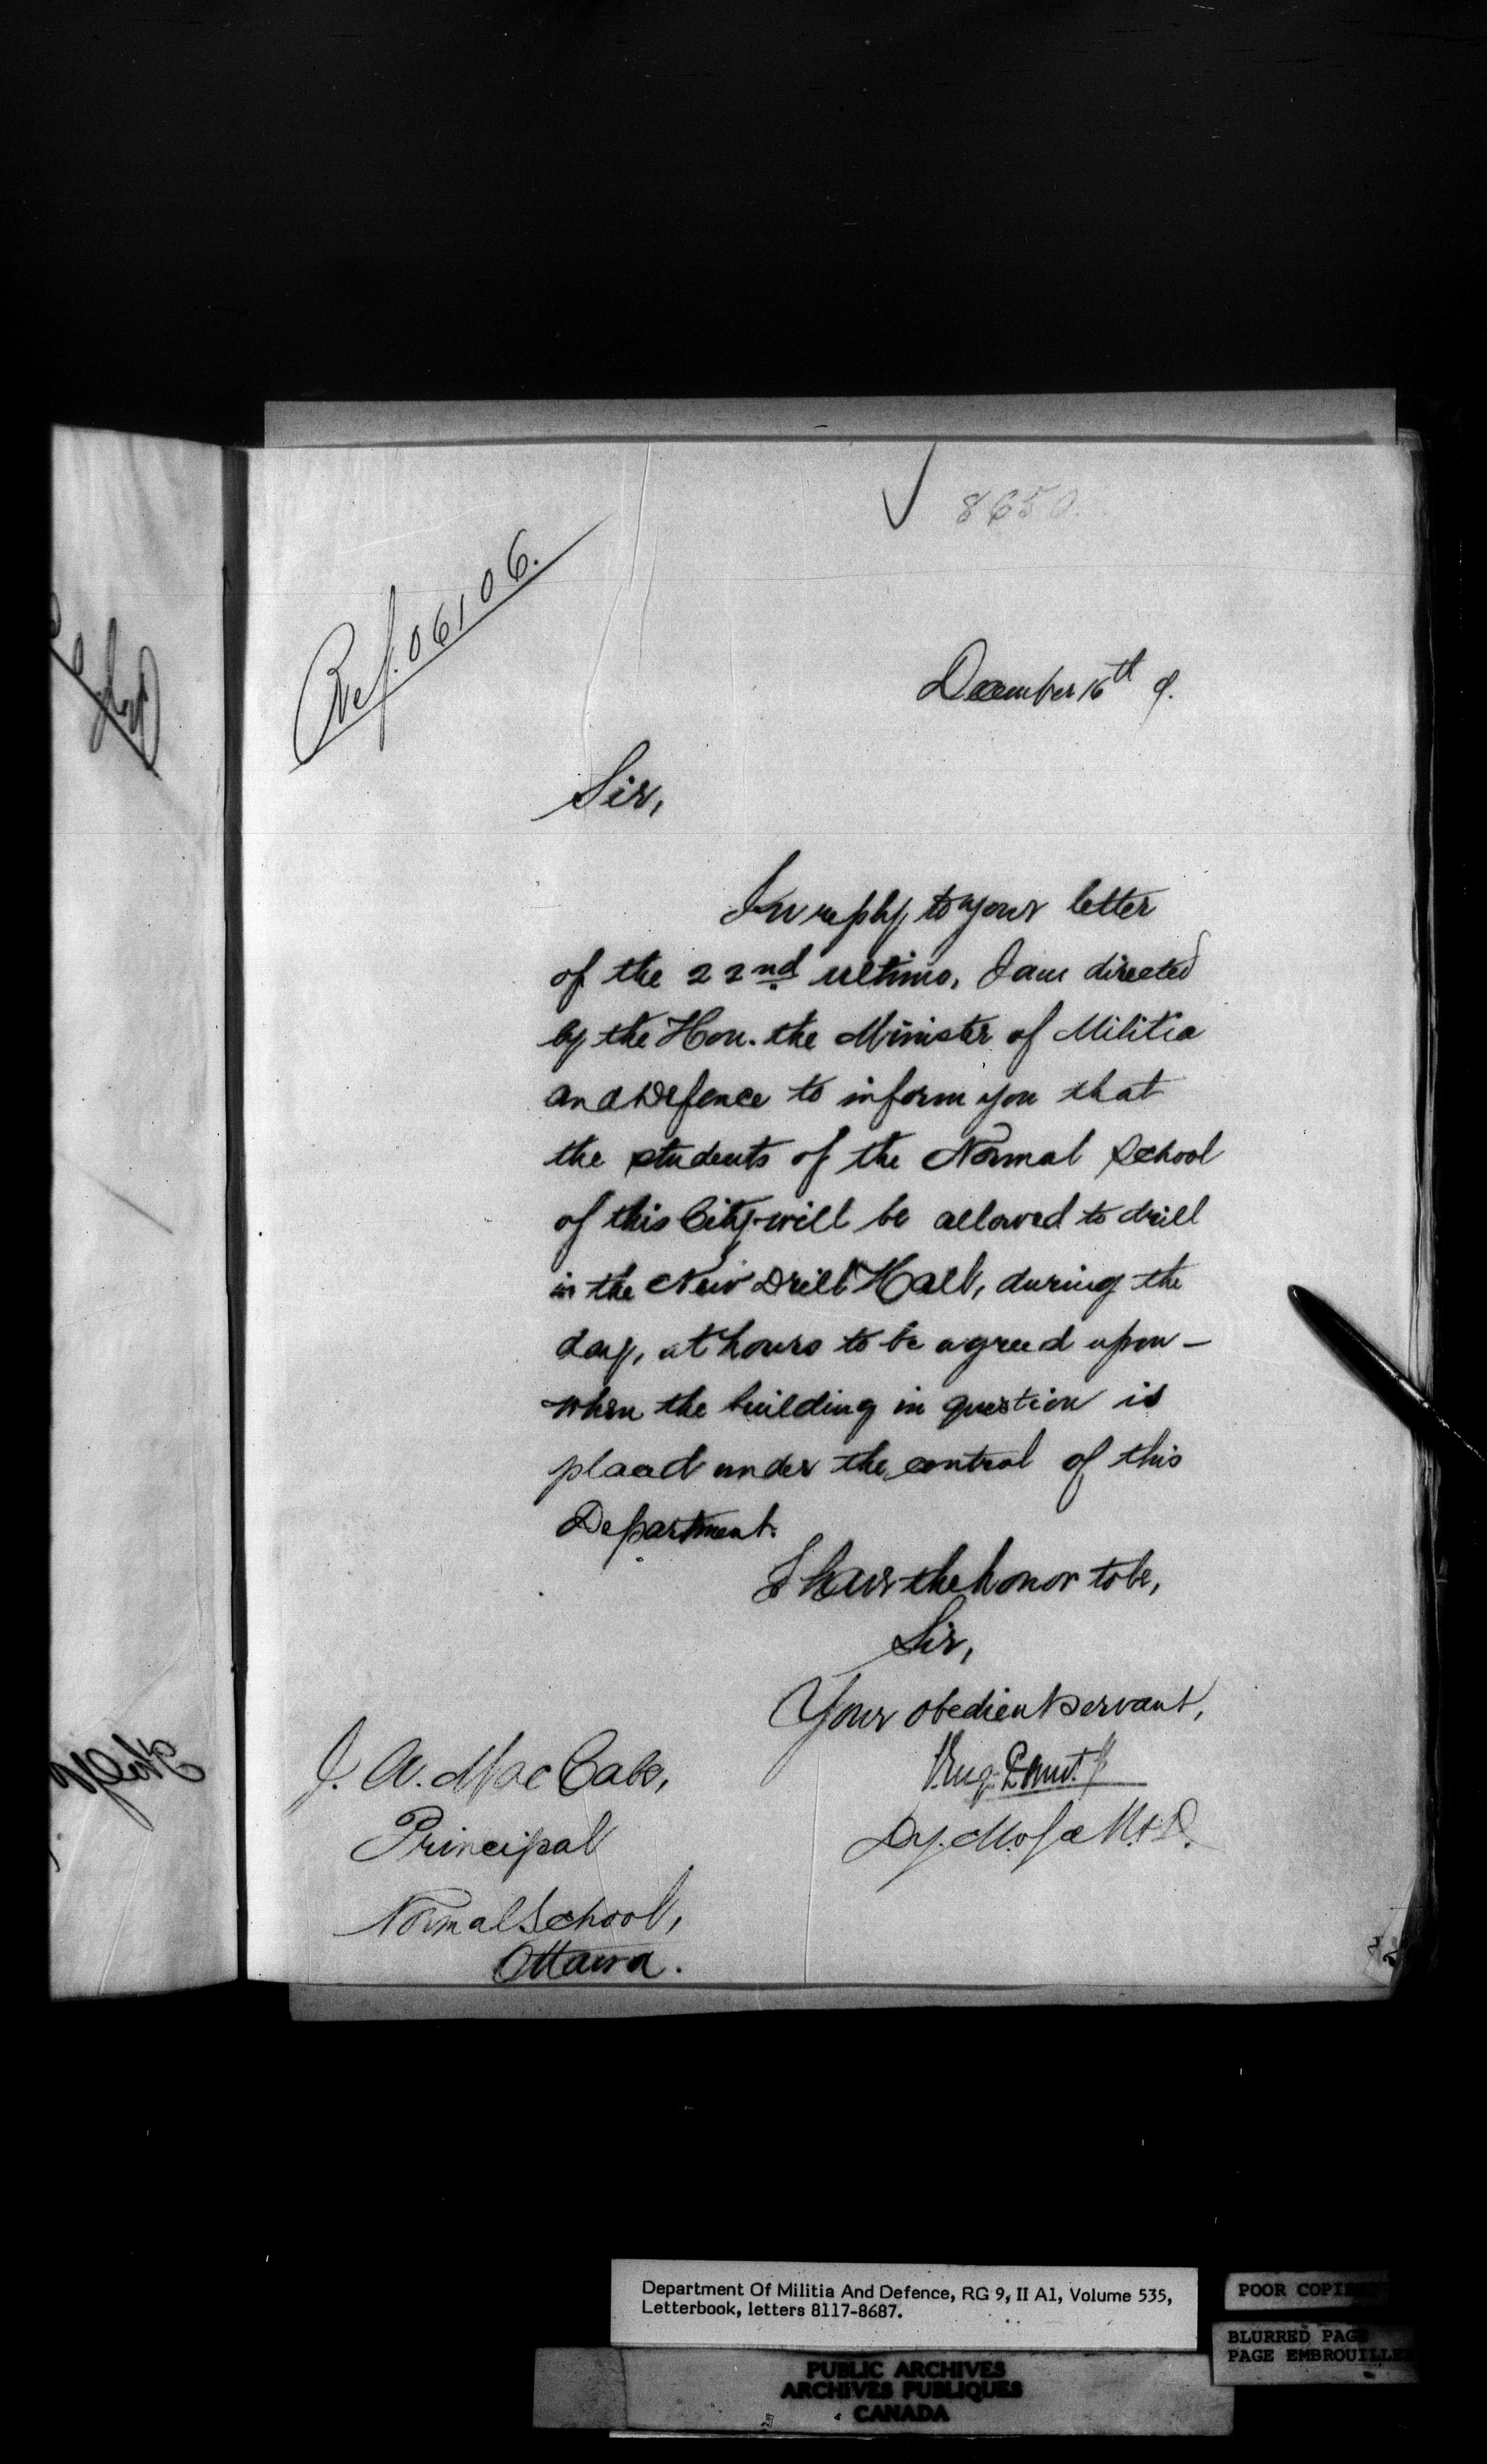 8650.
Ref. 06106.
December 16th 9.
Sir,
In reply to your letter
of the 22nd ultimo, I am directed
by the Hon. the Minister of Militia
and Defence to inform you that
the students of the Normal School
of this City will be allowed to drill
in the New Drill Hall, during the
day, at hours to be agreed upon –
when the building in question is
placed under the control of this
Department.
I have the honor to be,
Sir,
Your obedient servant,
Dy. M. of M. & D.
J. A. MacCabe,
Principal
Normal School,
Ottawa.
Department Of Militia And Defence, RG 9, II A1, Volume 535,
Letterbook, letters 8117-8687.
POOR COPIE
BLURRED PAGE
PAGE EMBROUILLE
PUBLIC ARCHIVES
ARCHIVES PUBLIQUES
CANADA